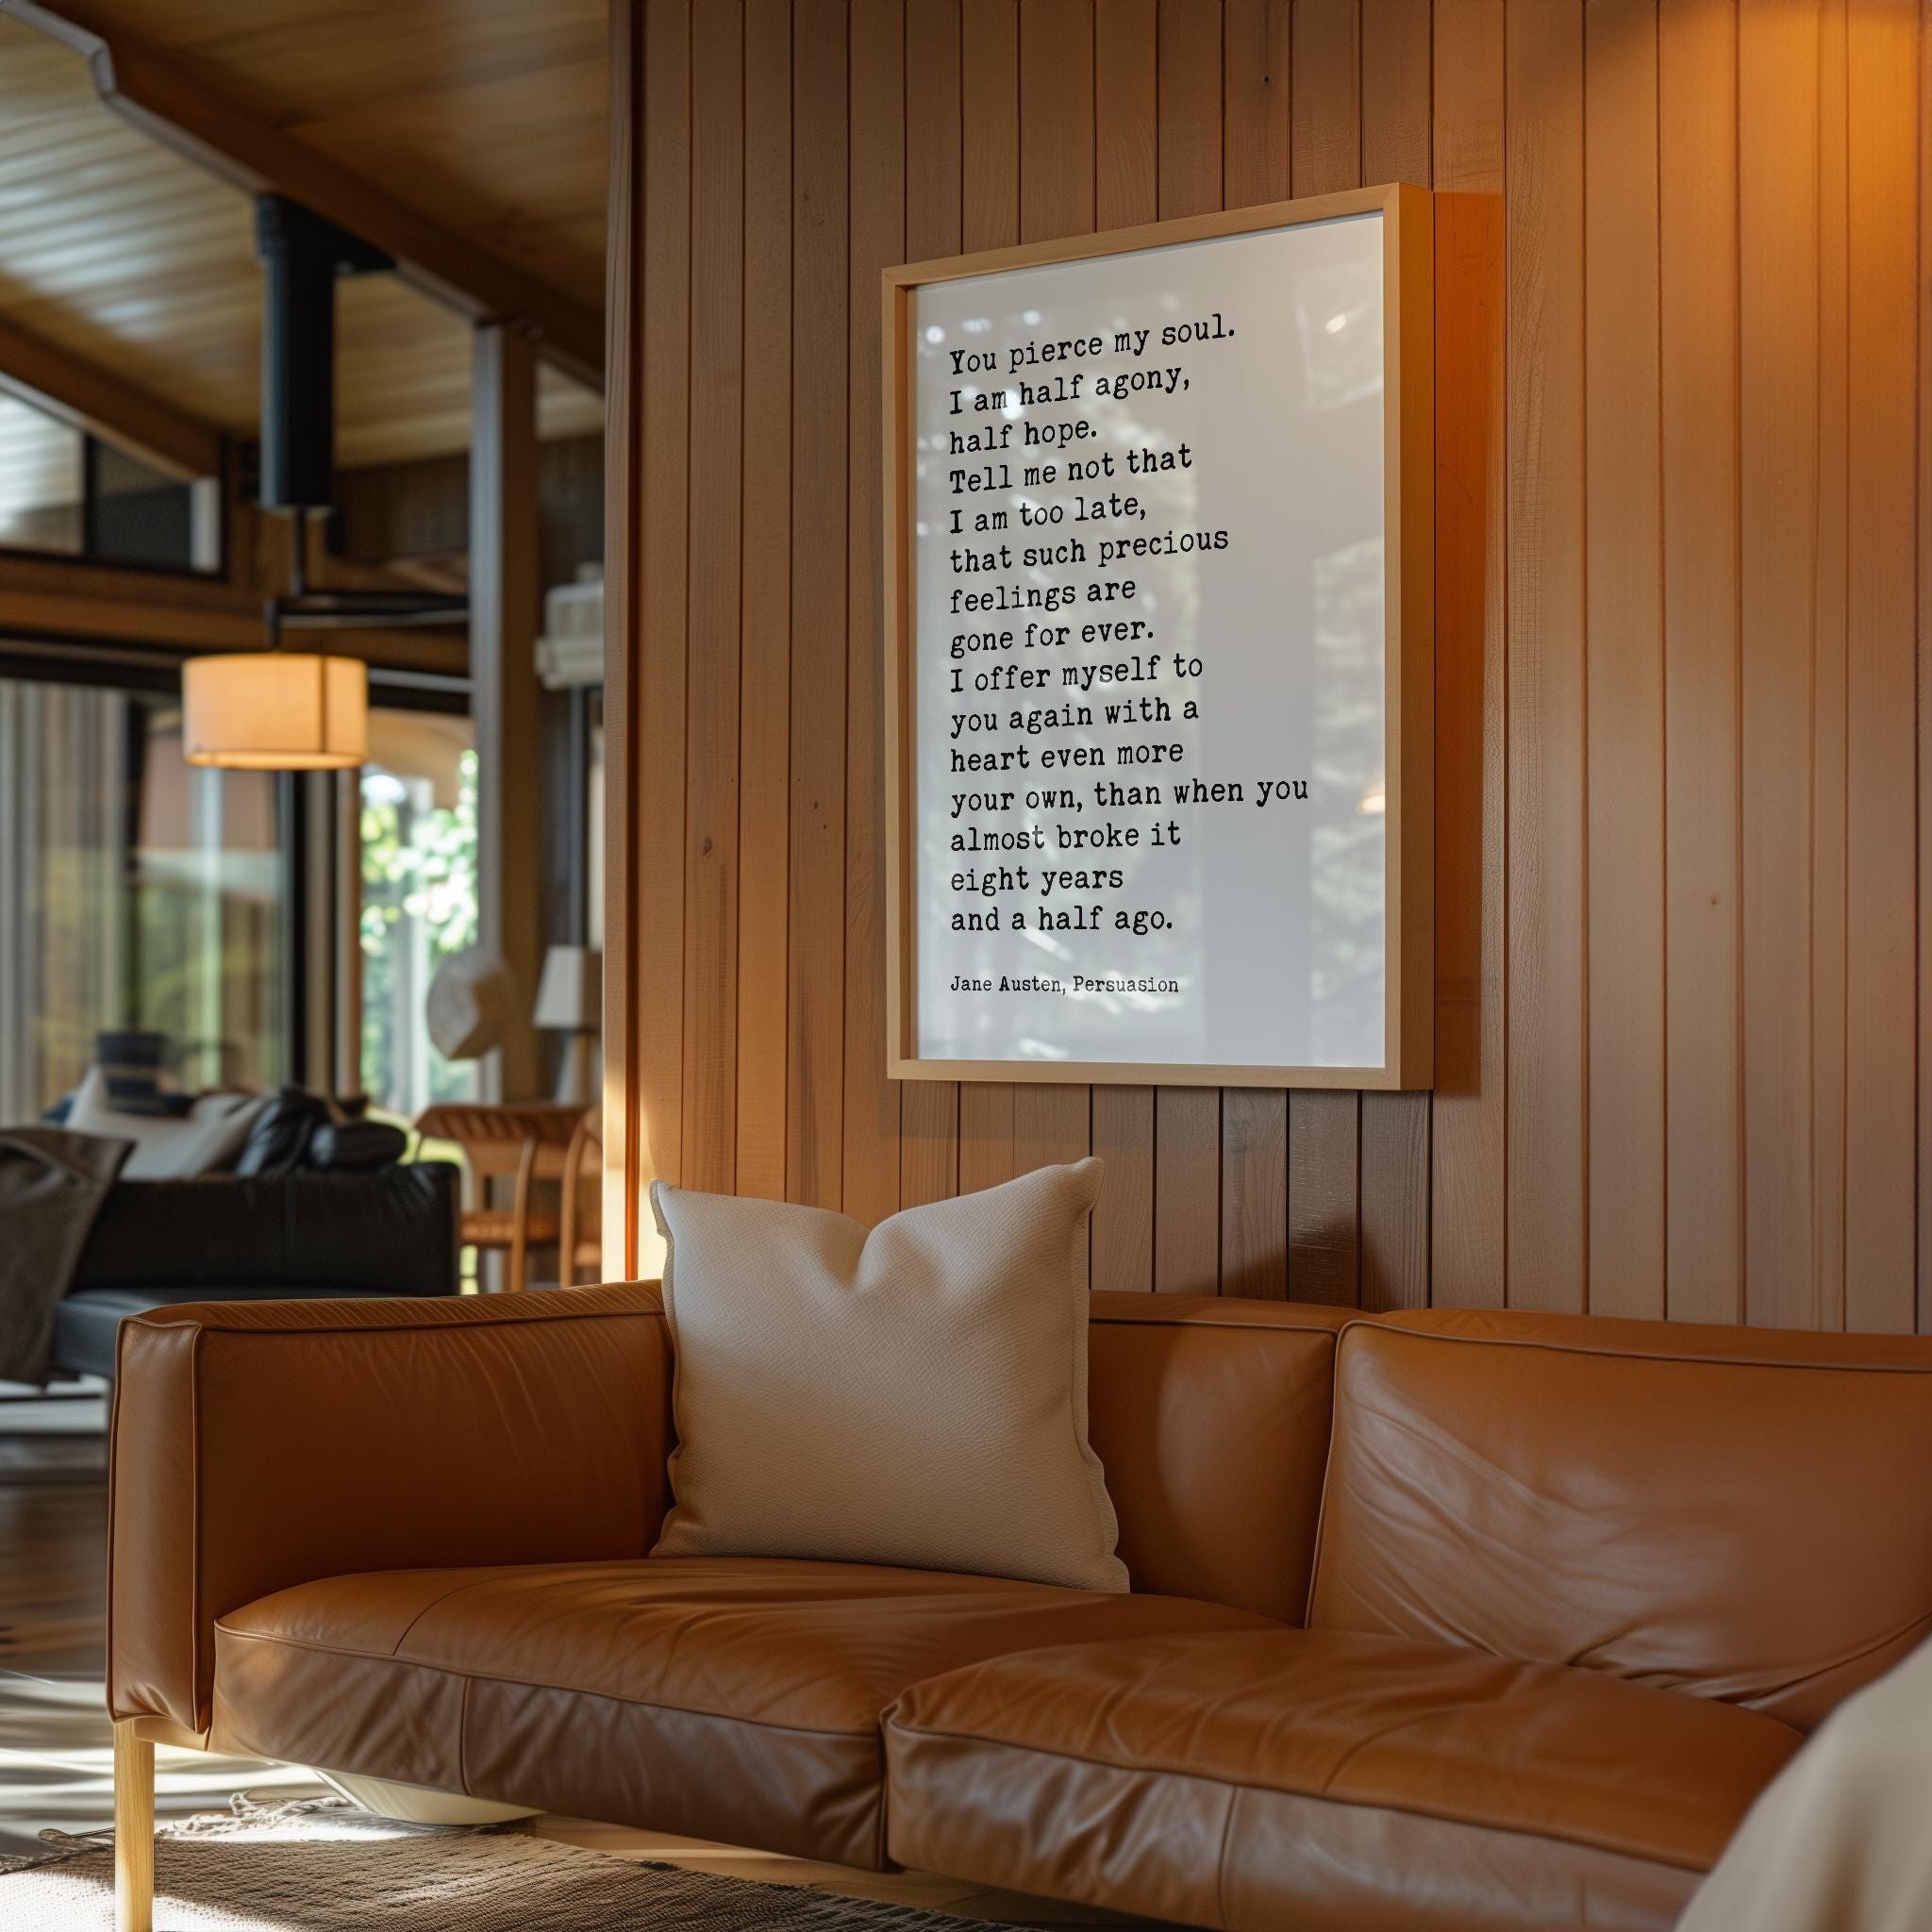 You pierce my soul.
I am half agony,
half hope.
Tell me not that
I am too late,
that such precious
feelings are
gone for ever.
I offer myself to
you again with a
heart even more
your own, than when you
almost broke it
eight years
and a half ago.
Jane Austen, Persuasion